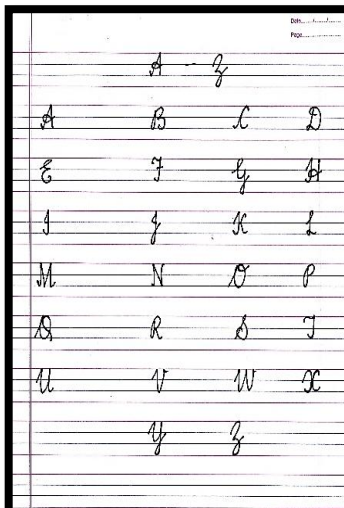 Date.........../........./...........
Page..........................
A - Z
A B C D
E F G H
I J K L
M N O P
Q R S T
U V W X
Y Z